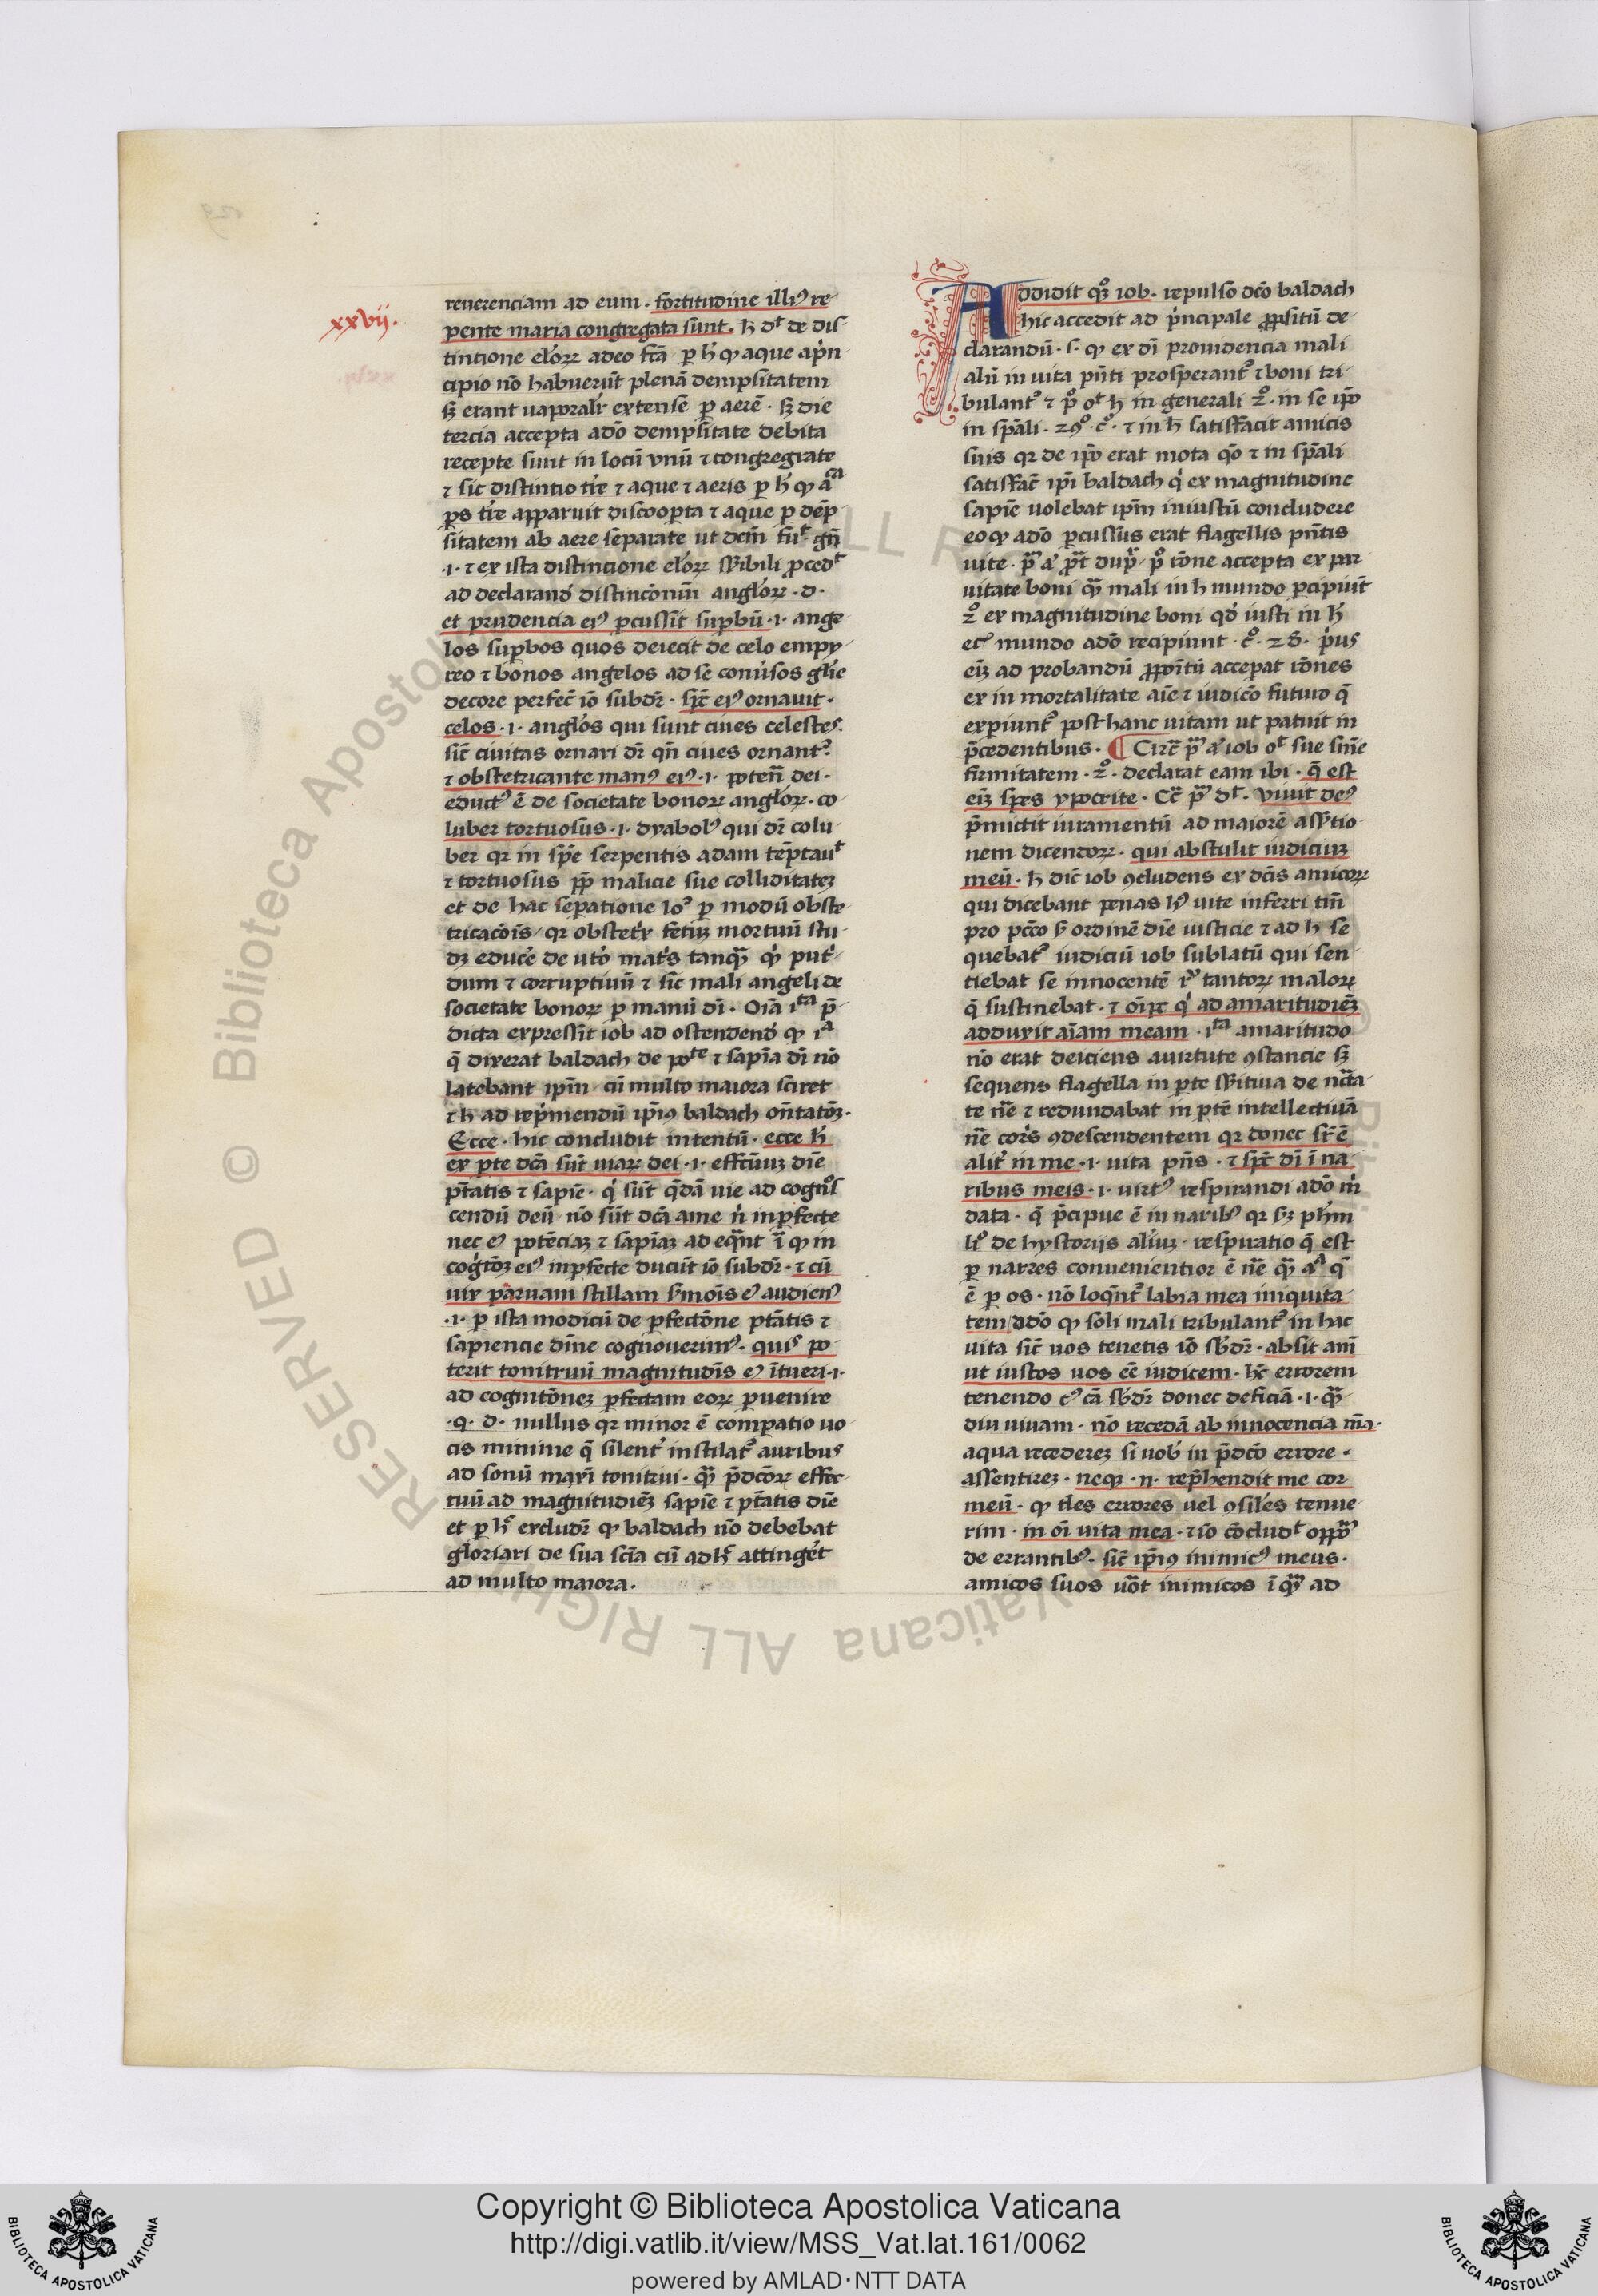 xxvij.
reuerenciam ad eum · fortitudine illiꝰ re-
pente maria congregata sunt. h̄ dr̄ de dis-
tinctione elōꝝ adeo fc̄ā p̱ h̄ ꝙ aque apn̄-
cipio nō habuerūt plenā dempsitatem
sꝫ erant uaporalr̄ extense p̱ aerē · sꝫ die
tercia accepta adō dempsitate debita
recepte sunt in locū vnū ⁊ congregate
⁊ sic distinctio tr̄e ⁊ aque ⁊ aeris p̱ h̄ ꝙ aᶜᵃ
p̱s tr̄e apparuit discoop̱ta ⁊ aque p̱ dēp̱-
sitatem ab aere seperate ut dcm̄ fūᵗ · gn̄
·i· ⁊ ex ista distinctione elōꝝ sn̄sibili ꝓcedᵗ
ad declarand̄ distinctōnm̄ anglōꝝ · d·
et prudencia eiꝰ p̱cussit sup̱bū ·i· ange-
los sup̱bos quos deiecit de celo empy-
reo ⁊ bonos angelos ad se conūsos glīe
decore perfec̄ iō subdr̄ · sp̄c̄ eiꝰ ornauit ·
celos ·i· anglōs qui sunt ciues celestes.
sic̄ ciuitas ornari dr̄ qn̄ ciues ornantᵘʳ
⁊ obstetricante manꝰ eiꝰ ·i· poten̄ dei ·
eductꝰ ē de societate bonoꝝ anglōꝝ · co-
luber tortuosus ·i· dyabolꝰ qui dr̄ colu-
ber qr in sp̄e serpentis adam tēptauᵗ
⁊ tortuosus pp̄ malicie sue colliditatēꝫ
et de hac sep̱atione loᵘʳ p̱ modū obste-
tricacōis / qr obstetx̄ fetuꝫ mortuū stu-
dꝫ educe̕ de ut̕o mat̕s tanqᵃ̄ qⁱ put̕-
dum ⁊ corruptiuū ⁊ sic mali angeli de
societate bonoꝝ p̱ manū dī · Oīa iᵗᵃ p̄-
dicta expressit iob ad ostendend̕ ꝙ iᵃ
q̄ dixerat baldach de poᵗᵉ ⁊ sapīa dī nō
latebant ipm̄ / cū multo maiora sciret
⁊ h̄ ad rep̕mendū ip̄iꝰ baldach on̄tatōꝫ ·
Ecce · hic concludit intentū · ecce h̄
ex p̱te dc̄ā sūt uiaꝝ dei ·i· effectūuꝫ dīe
pt̄atis ⁊ sapīe · qⁱ sūt q̄dā uie ad cognos-
cendū deū / nō sūt dc̄ā ame nⁱ inp̱fecte
nec eꝰ potēciaꝫ ⁊ sapīaꝫ ad eqᵃnt ī ꝙ in
cogⁱtōꝫ eiꝰ inp̱fecte ducūt iō subdr̄ · ⁊ cū
uix paruam stillam s̕mois eꝰ audienꝰ
·i· p̱ ista modicū de p̱fectōne pt̄atis ⁊
sapiencie dīne cognouerimꝰ · quis po-
terit tonitruū magnitudīs eꝰ ītueri ·i·
ad cognitōneꝫ p̱fectam eoꝝ p̱uenire
·q· d· nullus qr minor ē comp̱atio uo-
cis minime q̄ silent̕ instilatᵘʳ auribus
ad sonū maxī tonitrui · qᵃ̄ p̄dcōꝝ effec-
tuū ad magnitudiēꝫ sapīe ⁊ pt̄atis dīe
et p̱ h̄ᶜ excludr̄ ꝙ baldach nō debebat
gloriari de sua scīa cū adh̄ᶜ attingēt
ad multo maiora.
ADdidit qꝫ iob · repulso dcō baldach
hic accedit ad pⁱncipale ꝓpositū de-
clarandū · s· ꝙ ex dī prouidencia mali
aliī in uita pn̄ti prosperantᵘʳ ⁊ boni tri-
bulantᵘʳ ⁊ p̊ oᵗ h̄ in generali 2̊ · in se ipō
in sp̄ali · 29̊ · c̊ · ⁊ in h̄ satisfacit amicis
suis qr de ipō erat mota qō ⁊ in sp̄ali
satisfac̄ ip̄i baldach qⁱ ex magnitudine
sapīe uolebat ipm̄ iniustū concludere
eo ꝙ adō p̱cussus erat flagellis pn̄tis
uite · pᵃ aᵒ pᵃt dupx̄ · p̊ rōne accepta ex par-
uitate boni qᵃ̄ mali in h̄ mundo p̱cipiūt
2̊ ex magnitudine boni qd̕ iusti in h̄
eciā mundo adō recipiunt · c̊ · 28 · pⁱus
eīꝫ ad probandū ꝓpoītū accep̱at rōnes
ex in mortalitate aīe ⁊ iudicō futuro q̄
exp̱iuntᵘʳ post hanc uitam ut patuit in
p̄cedentibus · ¶ Circ̄ pᵃ aᵒ iob oᵗ sue sn̄ie
firmitatem · 2̊ · declarat eam ibi · q̄ est
eīꝫ spes ypocrite · Cc̄ pᵃ dᵗ · viuit deꝰ
p̄mictit iuramentū ad maiorē assertio-
nem dicendoꝝ · qui abstulit iudiciuꝫ
meū · h̄ dic̄ iob ꝯcludens ex dc̄is amicoꝝ
qui dicebant penas hꝰ uite inferri tm̄
pro pccō s̄ ordinē dīe iusticie ⁊ ad h̄ se-
quebatᵘʳ iudiciū iob sublatū qui sen-
tiebat se innocentē rᵘ tantoꝝ maloꝝ
q̄ sustinebat · ⁊ oīpc qⁱ ad amaritudiēꝫ
adduxit aīam meam · iᵗᵃ amaritudo
nō erat deiciens auirtute ꝯstancie sꝫ
sequens flagella in p̱te sn̄sitiua de nc̄cā-
te nē ⁊ redundabat in p̱tē intellectiuā
nē cor̕s ꝯdescendentem qr donec sr̄ ē
alit̕ in me ·i· uita pn̄s · ⁊ sp̄c̄ dī ī na-
ribus meis ·i· uirtꝰ respirandi adō m̕
data · q̄ p̄cipue ē in naribꝰ qr sꝫ phm̄
liᵒ de hystorijs alīuꝫ · respiratio q̄ est
p̱ narres conuenientior ē nē qᵃ̄ aᵃ q̄
ē p̱ os · nō loqn̄tᵘʳ labia mea iniquita-
tem / adō ꝙ soli mali tribulantᵘʳ in hac
uita sic̄ uos tenetis iō sb̄dr̄ · absit am̄
ut iustos uos ēē iudicem · h̄c errorem
tenendo cꝰ cā sb̄dr̄ donec deficiā ·i· qᵃ̄
diu uiuam · nō recedā ab innocencia mᵃ̄ ·
aqua recedereꝫ si uob̕ in p̄dcō errore ·
assentireꝫ · neqꝫ ·n· rep̄hendit me cor
meū · ꝙ tles errores uel ꝯsil̕es tenue-
rim · in oī uita mea · ⁊ iō cōcludᵗ oppōᵐ
de errantibꝰ · sic̄ ip̄iꝰ inimicꝰ meus ·
amicos suos uōt inimicos ī qᵃ̄ ad
Copyright © Biblioteca Apostolica Vaticana
http://digi.vatlib.it/view/MSS_Vat.lat.161/0062
powered by AMLAD·NTT DATA
BIBLIOTECA APOSTOLICA VATICANA
BIBLIOTECA APOSTOLICA VATICANA